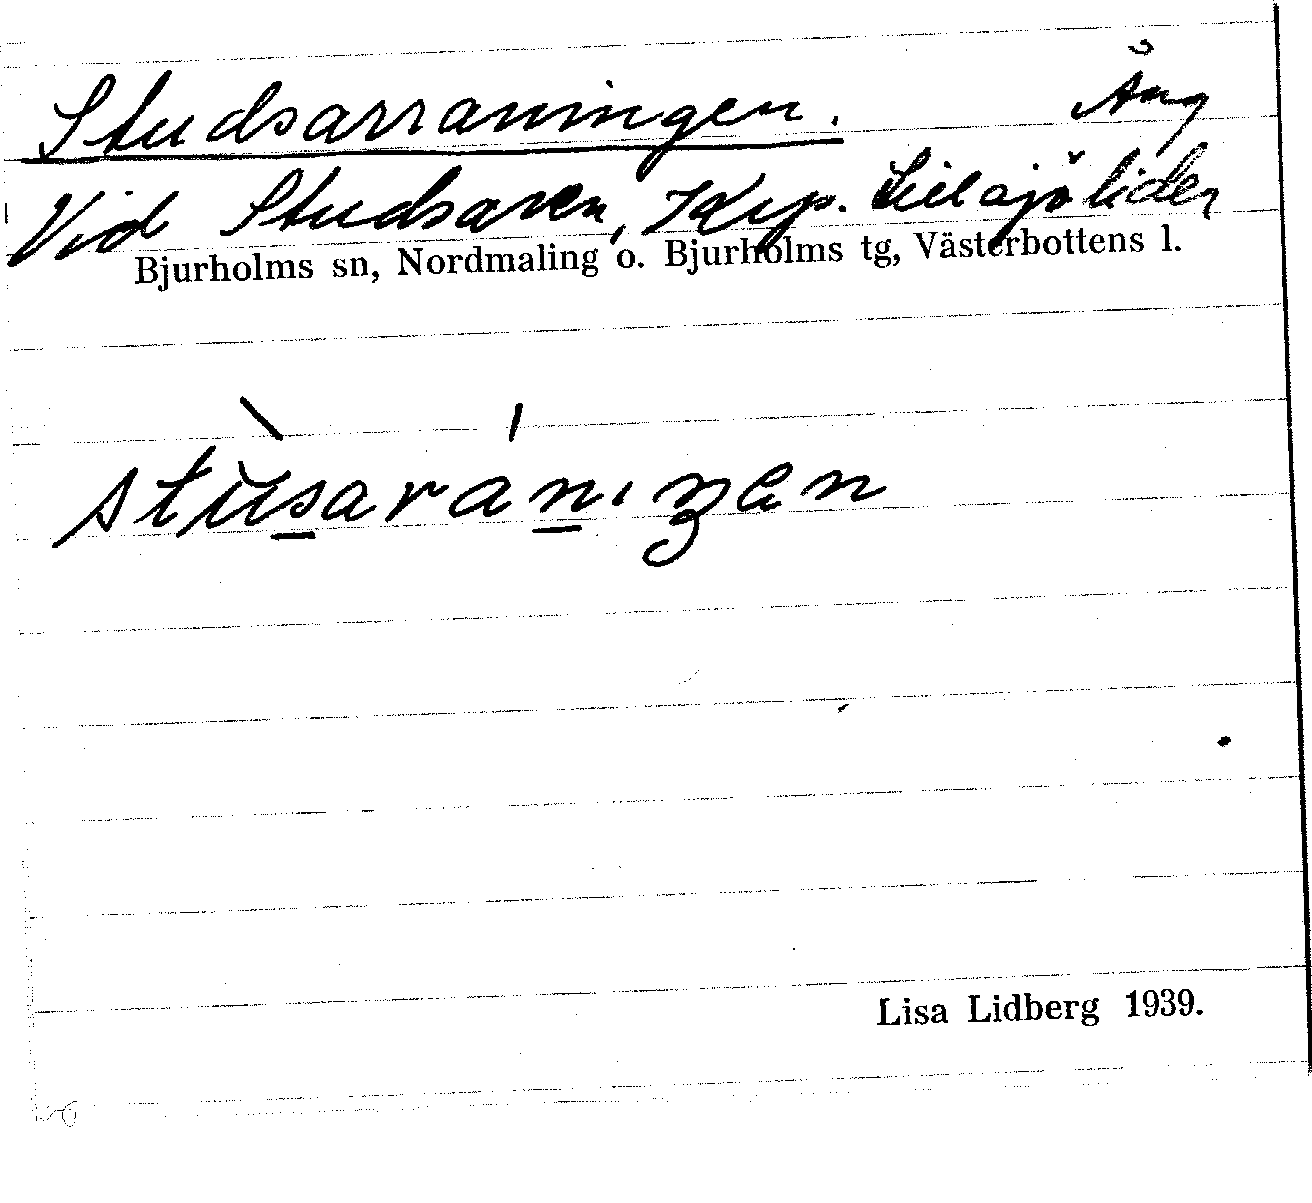 Studsarraningen. Ång
Vid Studsaren, Krp. Lillsjölider
Bjurholms sn, Nordmaling o. Bjurholms tg, Västerbottens l.
Lisa Lidberg 1939.